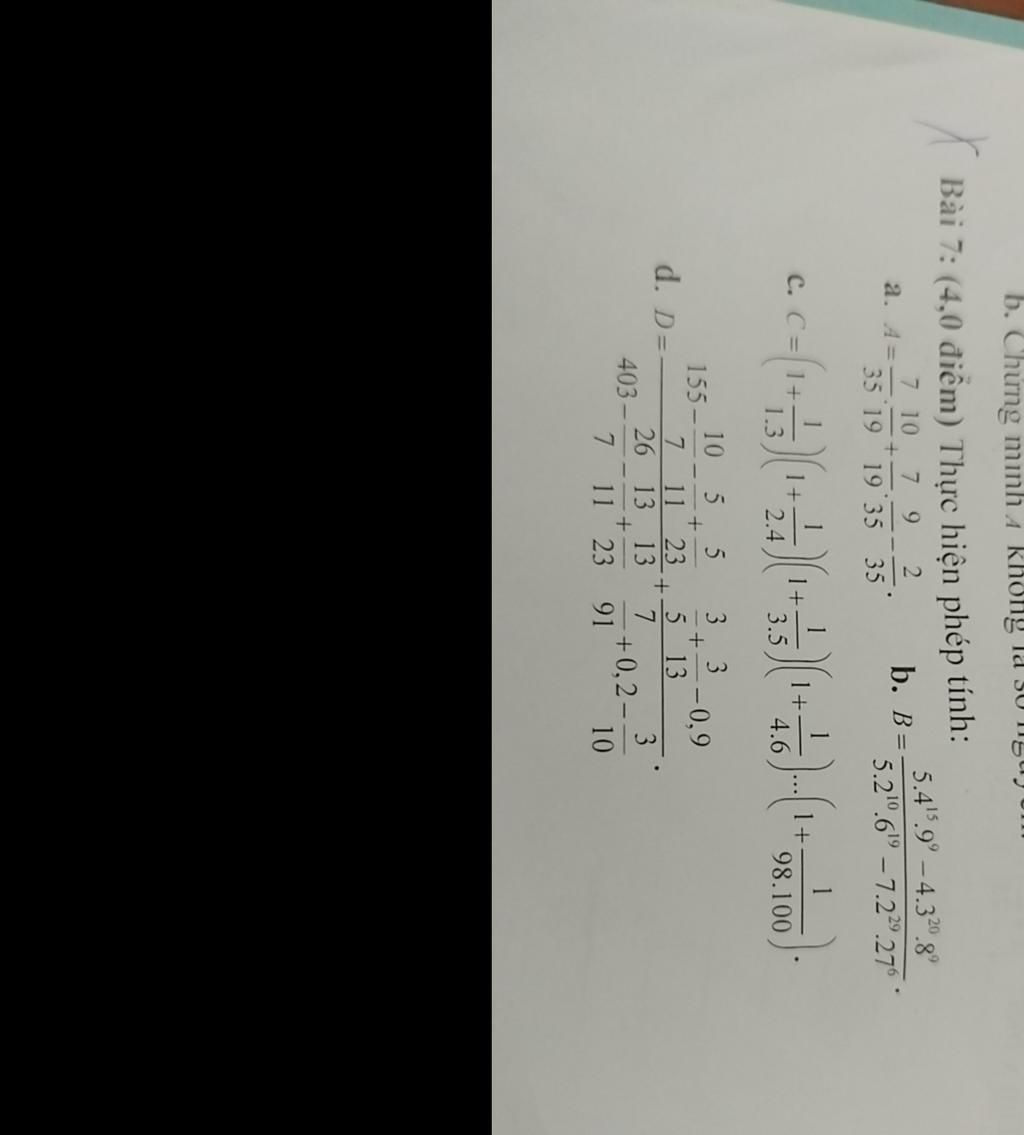 b. Chứng minh A không là số nguyên.
Bài 7: (4,0 điểm) Thực hiện phép tính:
a. A = 7/35 . 10/19 + 7/19 . 9/35 − 2/35 . b. B = (5.4¹⁵.9⁹ − 4.3²⁰.8⁹)/(5.2¹⁰.6¹⁹ − 7.2²⁹.27⁶) .
c. C = (1 + 1/1.3)(1 + 1/2.4)(1 + 1/3.5)(1 + 1/4.6)...(1 + 1/98.100) .
d. D = (155 − 10/7 − 5/11 + 5/23)/(403 − 26/7 − 13/11 + 13/23) + (3/5 + 3/13 − 0,9)/(7/91 + 0,2 − 3/10) .